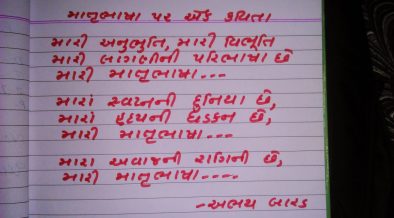 માતૃભાષા પર એક કવિતા
મારી અનુભુતિ, મારી વિભૂતિ
મારી લાગણીની પરિભાષા છે
મારી માતૃભાષા---
મારાં સ્વપ્નની દુનિયા છે,
મારાં હૃદયની ધડકન છે,
મારી માતૃભાષા---
મારા અવાજની રાગિની છે,
મારી માતૃભાષા----
-અભય બારડ